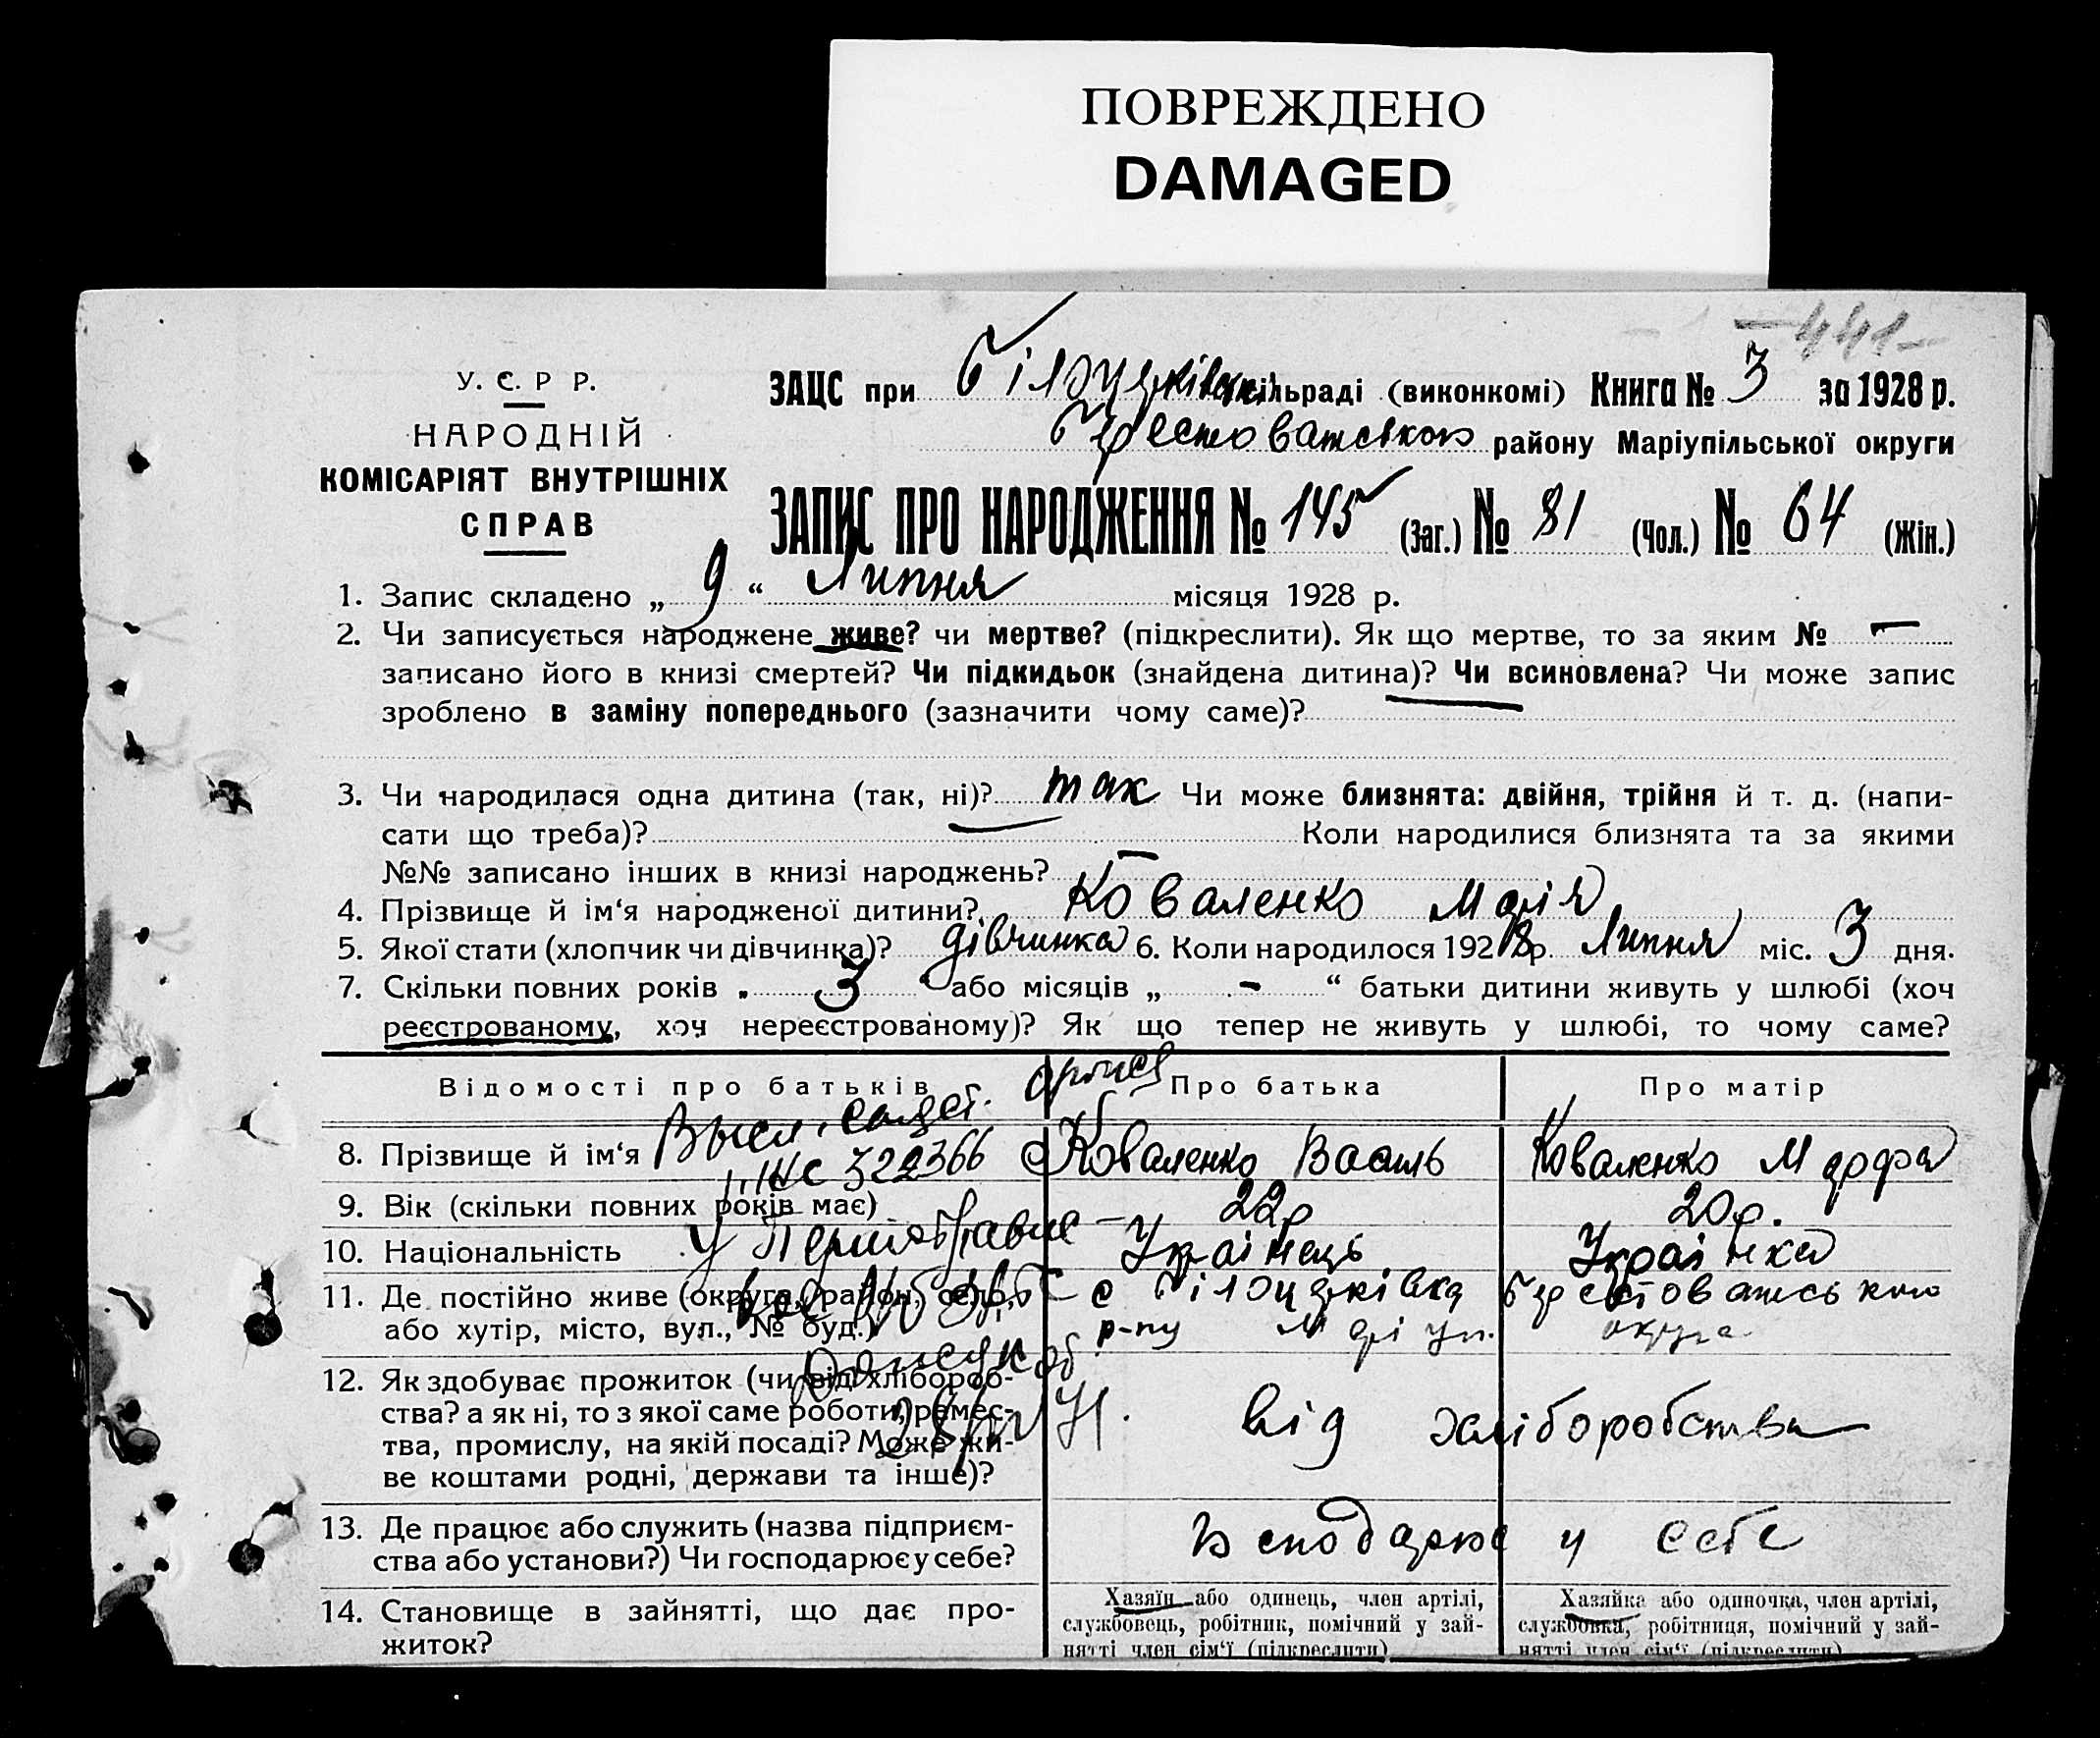 ПОВРЕЖДЕНО
DAMAGED
441
У. С. Р Р.
НАРОДНІЙ
КОМІСАРІЯТ ВНУТРІШНІХ
СПРАВ
ЗАЦС при Білоцерківській сільраді (виконкомі) Книга № 3 за 1928 р.
Берестоватського району Маріупільської округи
ЗАПИС ПРО НАРОДЖЕННЯ № 145 (Заг.) № 81 (Чол.) № 64 (Жін.)
1. Запис складено „ 9 “ Липня місяця 1928 р.
2. Чи записується народжене живе? чи мертве? (підкреслити). Як що мертве, то за яким № —
записано його в книзі смертей? Чи підкидьок (знайдена дитина)? Чи всиновлена? Чи може запис
зроблено в заміну попереднього (зазначити чому саме)?
3. Чи народилася одна дитина (так, ні)? так Чи може близнята: двійня, трійня й т. д. (напи-
сати що треба)? — Коли народилися близнята та за якими
№№ записано інших в книзі народжень? —
4. Прізвище й ім‘я народженої дитини? Коваленко Марія
5. Якої стати (хлопчик чи дівчинка)? дівчинка 6. Коли народилось 1928 р. Липня міс. 3 дня.
7. Скільки повних років „ 3 “ або місяців „ - “ батьки дитини живуть у шлюбі (хоч
реєстрованому, хоч нереєстрованому)? Як що тепер не живуть у шлюбі, то чому саме?
Відомості про батьків Про батька Про матір
8. Прізвище й ім‘я Коваленко Василь Коваленко Марфа
322366
9. Вік (скільки повних років має) 22р 20р.
10. Національність Українець Українка
11. Де постійно живе (округа, район, село, с Білоцерківка Берестоватського
або хутір, місто, вул., № буд.) р-ну Маріуп. округа
12. Як здобуває прожиток (чи від хлібороб-
ства? а як ні, то з якої саме роботи, ремес- від хліборобства
тва, промислу, на якій посаді? Може жи-
ве коштами родні, держави та інше)?
13. Де працює або служить (назва підприєм- Господарює у себе
ства або установи?) Чи господарює у себе?
14. Становище в зайнятті, що дає про-
житок?
Хазяїн або одинець, член артілі,
службовець, робітник, помічний у зай-
нятті член сім‘ї (підкреслити)
Хазяйка або одиночка, член артілі,
службовка, робітниця, помічний у зай-
нятті член сім‘ї (підкреслити)